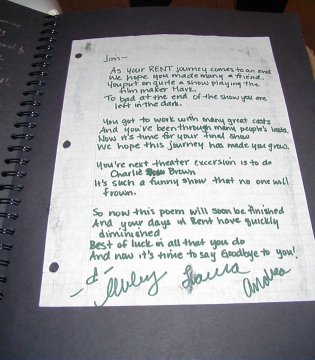 Jim—
As your RENT journey comes to an end
We hope you made many a friend.
You put on quite a show playing the
film maker Mark.
To bad at the end of the show you are
left in the dark.
You got to work with many great casts
And you've been through many people's lasts.
Now it's time for your final show
We hope this journey has made you grow.
You're next theater excersion is to do
Charlie Brown
It's such a funny show that no one will
frown.
So now this poem will soon be finished
And your days in Rent have quickly
diminished
Best of luck in all that you do
And now it's time to say Goodbye to you!
Andrea